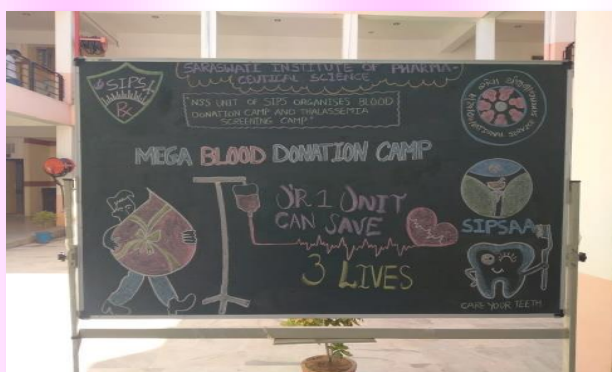 SARASWATI INSTITUTE OF PHARMA-
CEUTICAL SCIENCE
SIPS
Rx
"NSS UNIT OF SIPS ORGANISES BLOOD
DONATION CAMP AND THALASSEMIA
SCREENING CAMP"
MEGA BLOOD DONATION CAMP
UR 1 UNIT
CAN SAVE
3 LIVES
SIPSAA
CARE YOUR TEETH